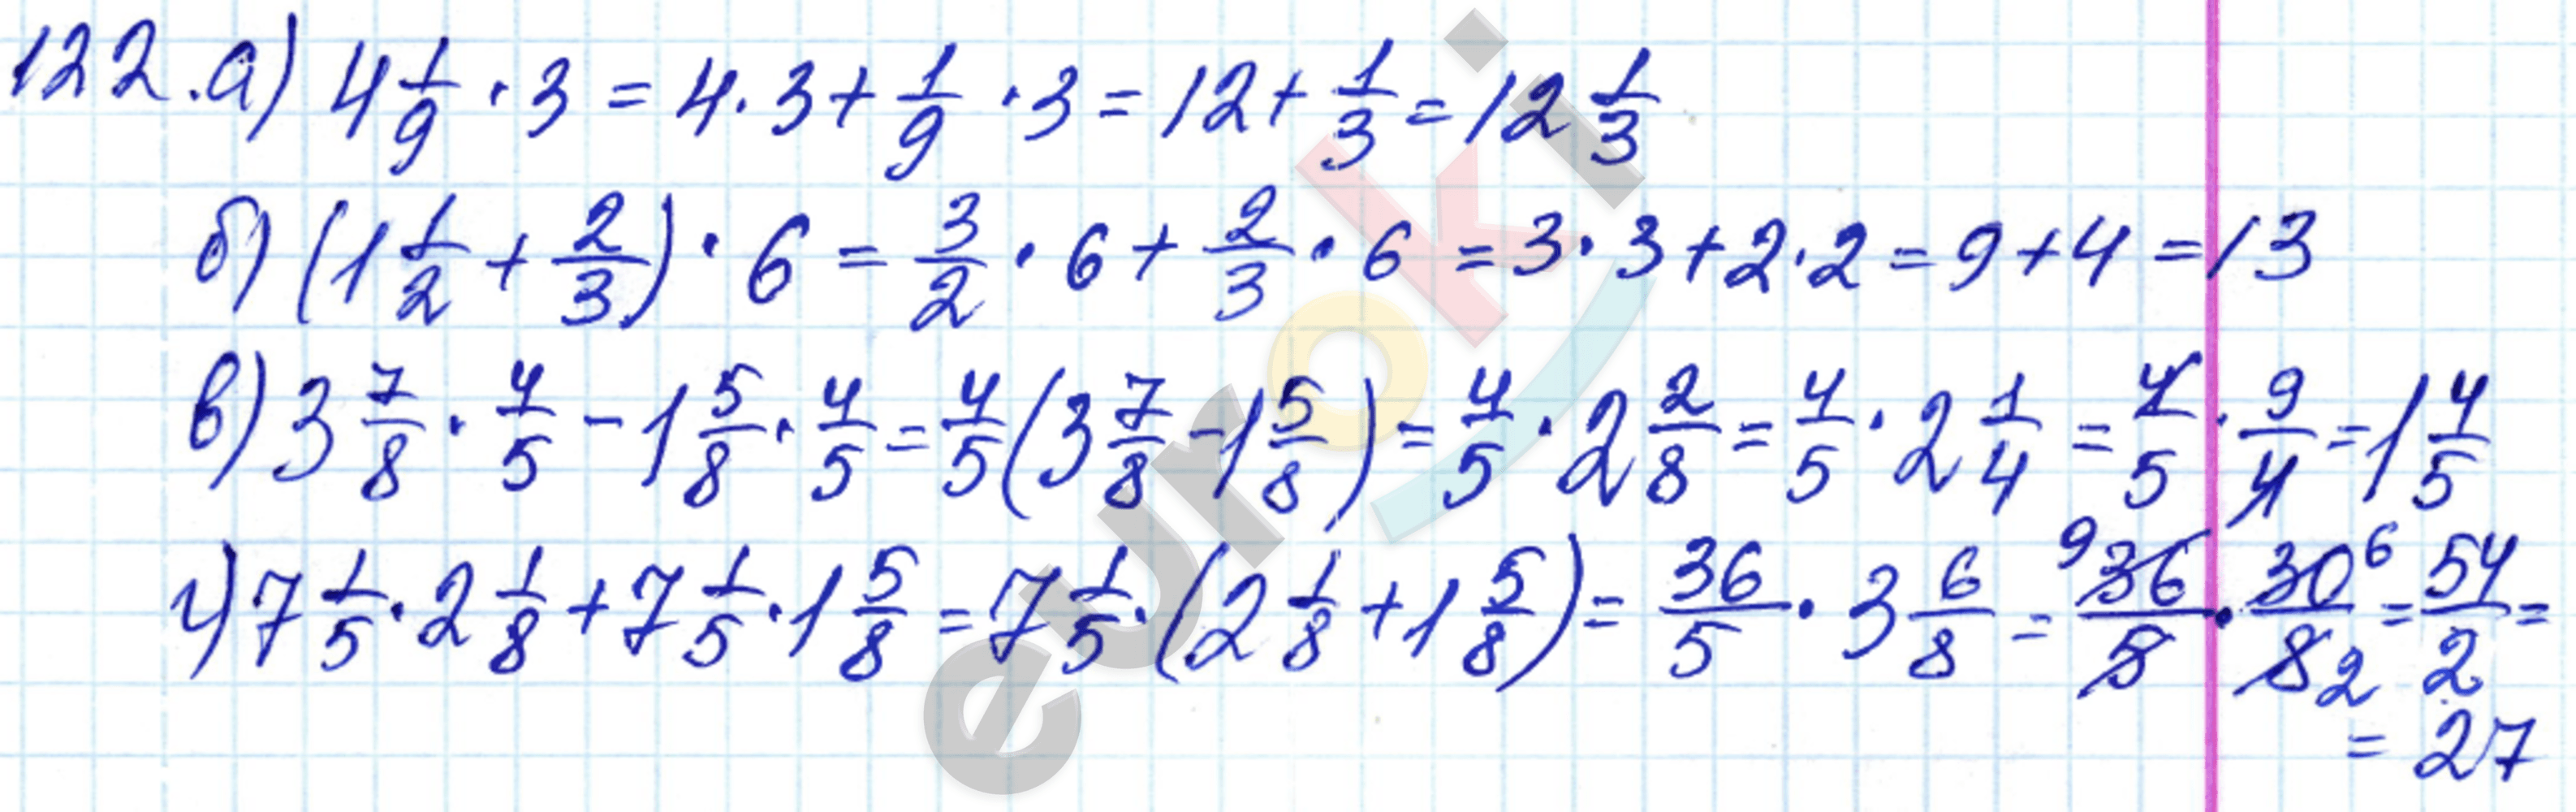 122. а) 4 1/9 · 3 = 4 · 3 + 1/9 · 3 = 12 + 1/3 = 12 1/3
б) (1 1/2 + 2/3) · 6 = 3/2 · 6 + 2/3 · 6 = 3 · 3 + 2 · 2 = 9 + 4 = 13
в) 3 7/8 · 4/5 - 1 5/8 · 4/5 = 4/5 (3 7/8 - 1 5/8) = 4/5 · 2 2/8 = 4/5 · 2 1/4 = 4/5 · 9/4 = 1 4/5
г) 7 1/5 · 2 1/8 + 7 1/5 · 1 5/8 = 7 1/5 · (2 1/8 + 1 5/8) = 36/5 · 3 6/8 = 9 36/5 · 30 6/8 2 = 54/2 =
= 27
euroki